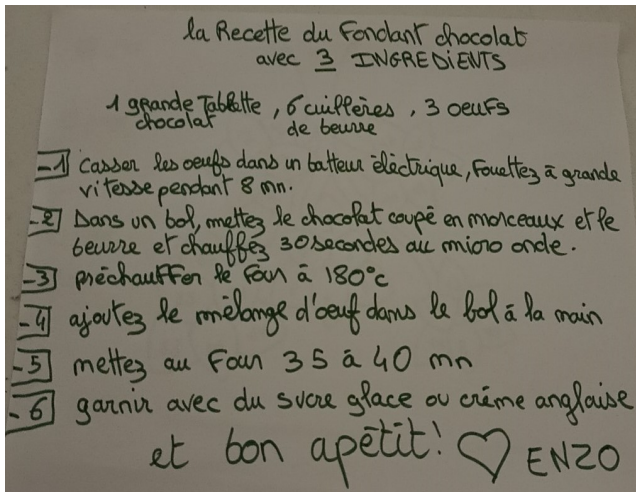 la Recette du Fondant chocolat
avec 3 INGREDIENTS
1 grande Tablette, 6 cuillères, 3 oeufs
chocolat de beurre
-1 Casser les oeufs dans un batteur élèctrique, Fouettez à grande
vitesse pendant 8 mn.
-2 Dans un bol, mettez le chocolat coupé en morceaux et le
beurre et chauffez 30 secondes au micro onde.
-3 préchauffer le Four à 180°c
-4 ajoutez le mélange d'oeuf dans le bol à la main
-5 mettez au Four 35 à 40 mn
-6 garnir avec du sucre glace ou créme anglaise
et bon apétit! ♡ ENZO